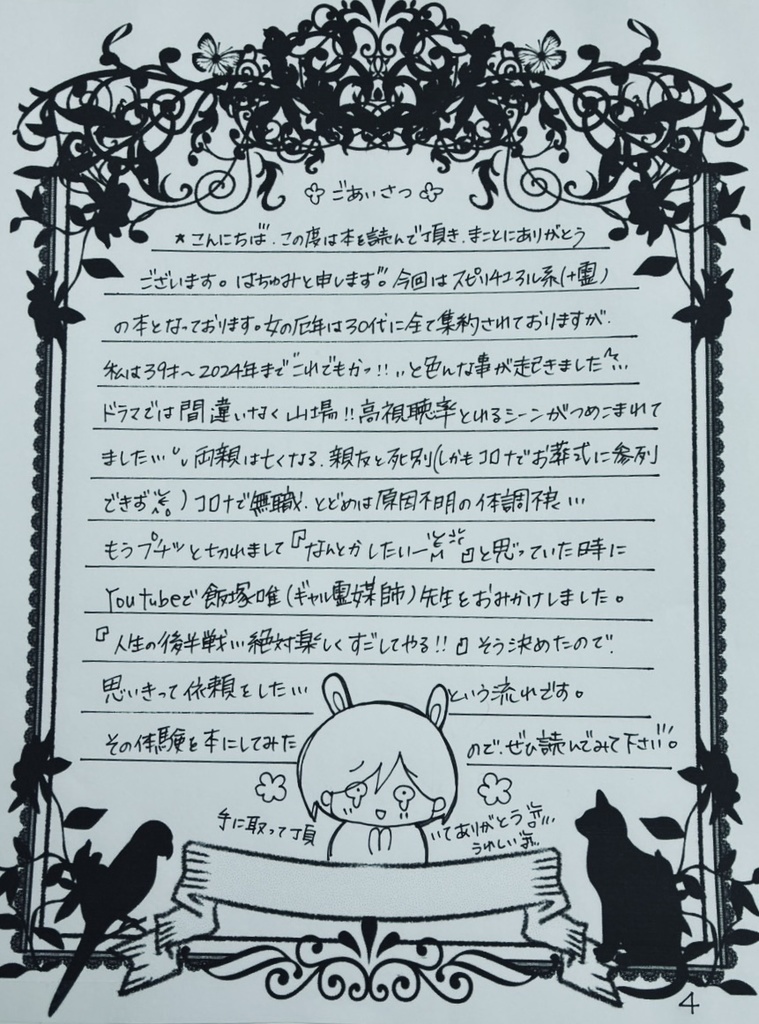 ごあいさつ
★こんにちは、この度は本を読んで頂き、まことにありがとう
ございます。はちゅみと申します!! 今回はスピリチュアル系(+霊)
の本となっております。女の厄年は30代に全て集約されておりますが、
私は39才〜2024年まで"これでもかっ!!"と色んな事が起きました…
ドラマでは間違いなく山場!!高視聴率とれるシーンがつめこまれて
ました… 両親は亡くなる、親友と死別(しかもコロナでお葬式に参列
できず)コロナで無職、とどめは原因不明の体調不良…
もうプチッと切れまして『なんとかしたいー』と思っていた時に
YouTubeで飯塚唯(ギャル霊媒師)先生をおみかけしました。
『人生の後半戦…絶対楽しくすごしてやる!!』そう決めたので、
思いきって依頼をした… という流れです。
その体験を本にしてみた ので、ぜひ読んでみて下さい。
手に取って頂 いてありがとう…
うれしい
4